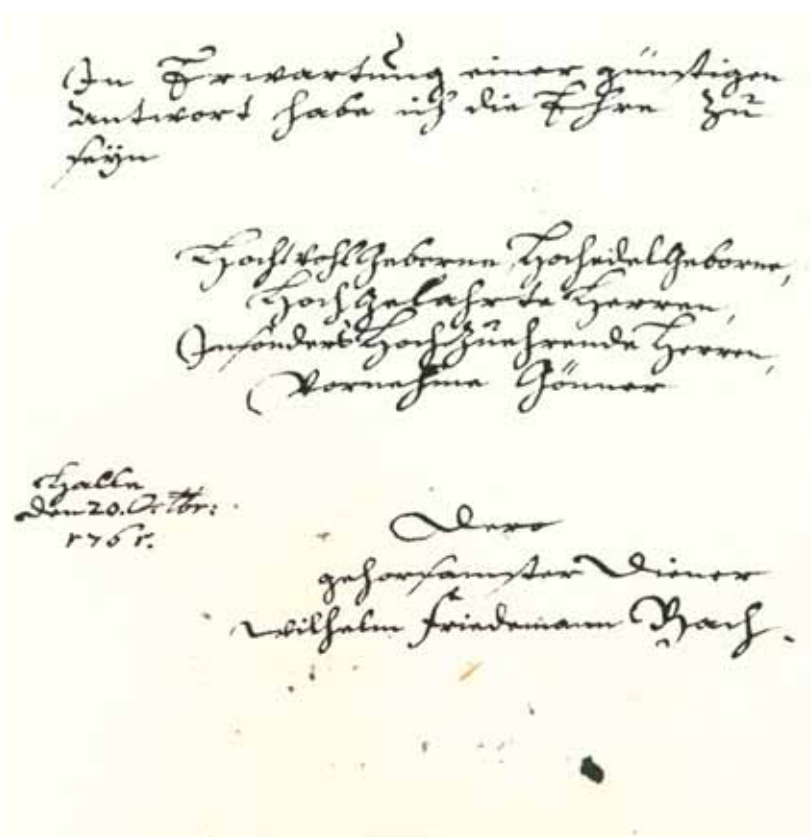 In Erwartung einer günstigen
Antwort habe ich die Ehre zu
seyn
HochwohlGeborne, HochedelGeborne,
HochGelahrte Herren,
Insonders HochZuehrende Herren,
Vornehme Gönner
Halle
den 20. Octbr:
1761.
Dero
gehorsamster Diener
Wilhelm Friedemann Bach.